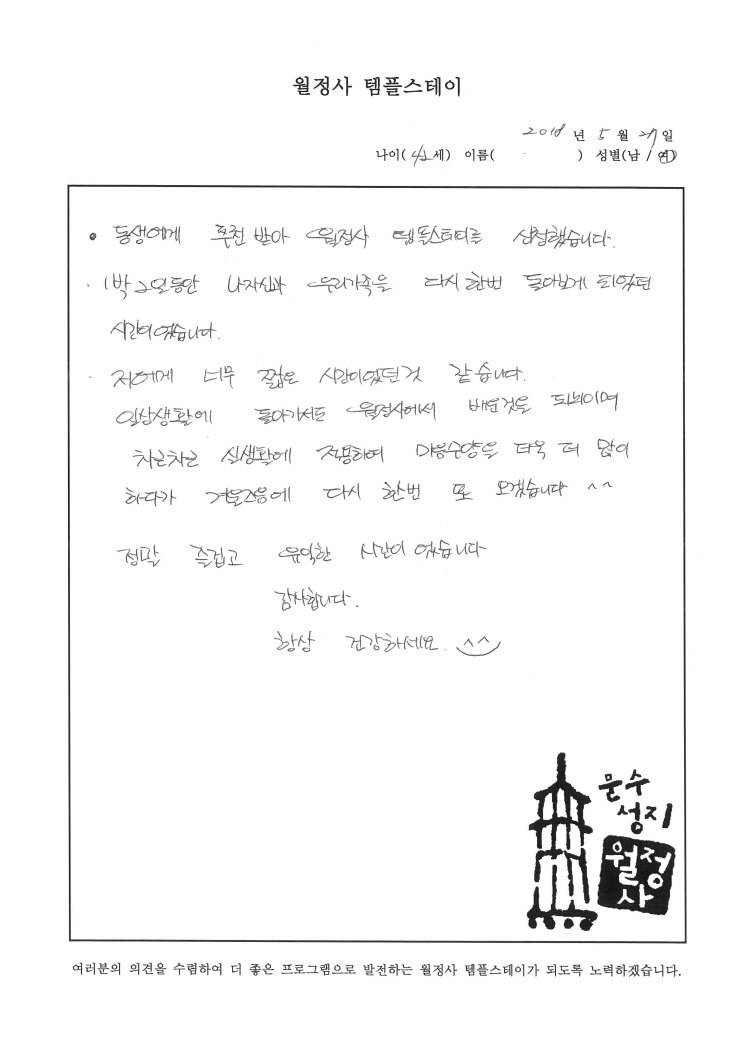 월정사 템플스테이
2018 년 5 월 27 일
나이( 42 세) 이름( ) 성별(남 / 여)
• 동생에게 추천 받아 월정사 템플스테이를 신청했습니다.
· 1박 2일동안 나자신과 우리가족을 다시 한번 돌아보게 되었던
시간이였습니다.
· 저에게 너무 짧은 시간이였던것 같습니다.
일상생활에 돌아가서도 월정사에서 배운것을 되뇌이며
차근차근 실생활에 적용하여 마음수양을 더욱 더 많이
하다가 겨울즈음에 다시 한번 또 오겠습니다 ^^
정말 즐겁고 유익한 시간이 였습니다
감사합니다.
항상 건강하세요. ^^
문수
성지
월정
사
여러분의 의견을 수렴하여 더 좋은 프로그램으로 발전하는 월정사 템플스테이가 되도록 노력하겠습니다.